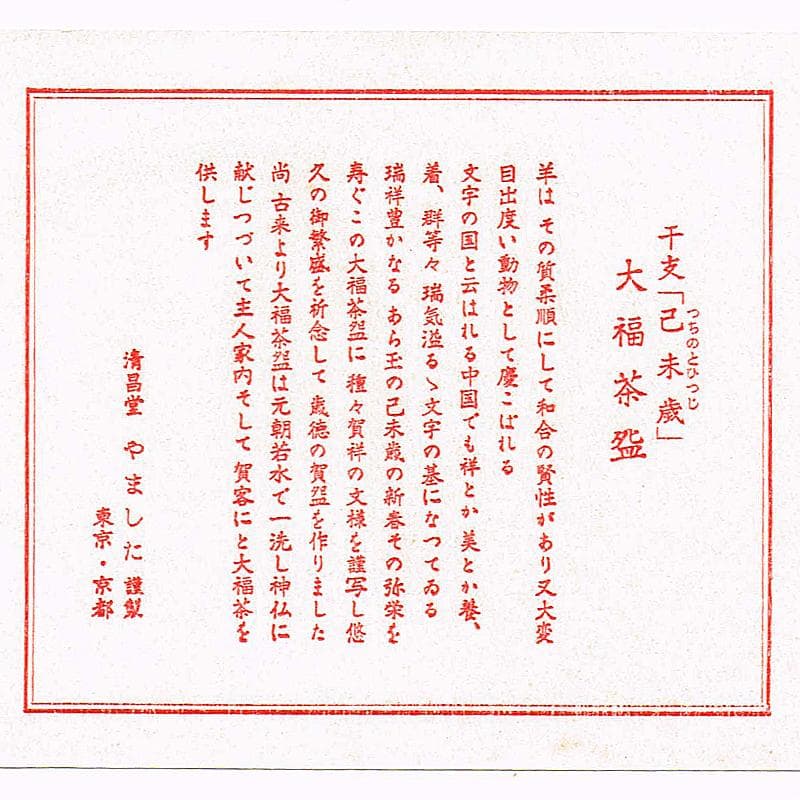 干支「己未歳」
つちのとひつじ
大福茶盌
羊は その質柔順にして和合の賢性があり又大変
目出度い動物として慶こばれる
文字の国と云はれる中国でも祥とか美とか養、
着、群等々瑞気溢るゝ文字の基になつてゐる
瑞祥豊かなる あら玉の己未歳の新春その弥栄を
寿ぐこの大福茶盌に 種々賀祥の文様を謹写し悠
久の御繁盛を祈念して 歳徳の賀盌を作りました
尚 古来より大福茶盌は元朝若水で一洗し神仏に
献じつづいて主人家内そして 賀客にと大福茶を
供します
清昌堂 やました 謹製
東京・京都